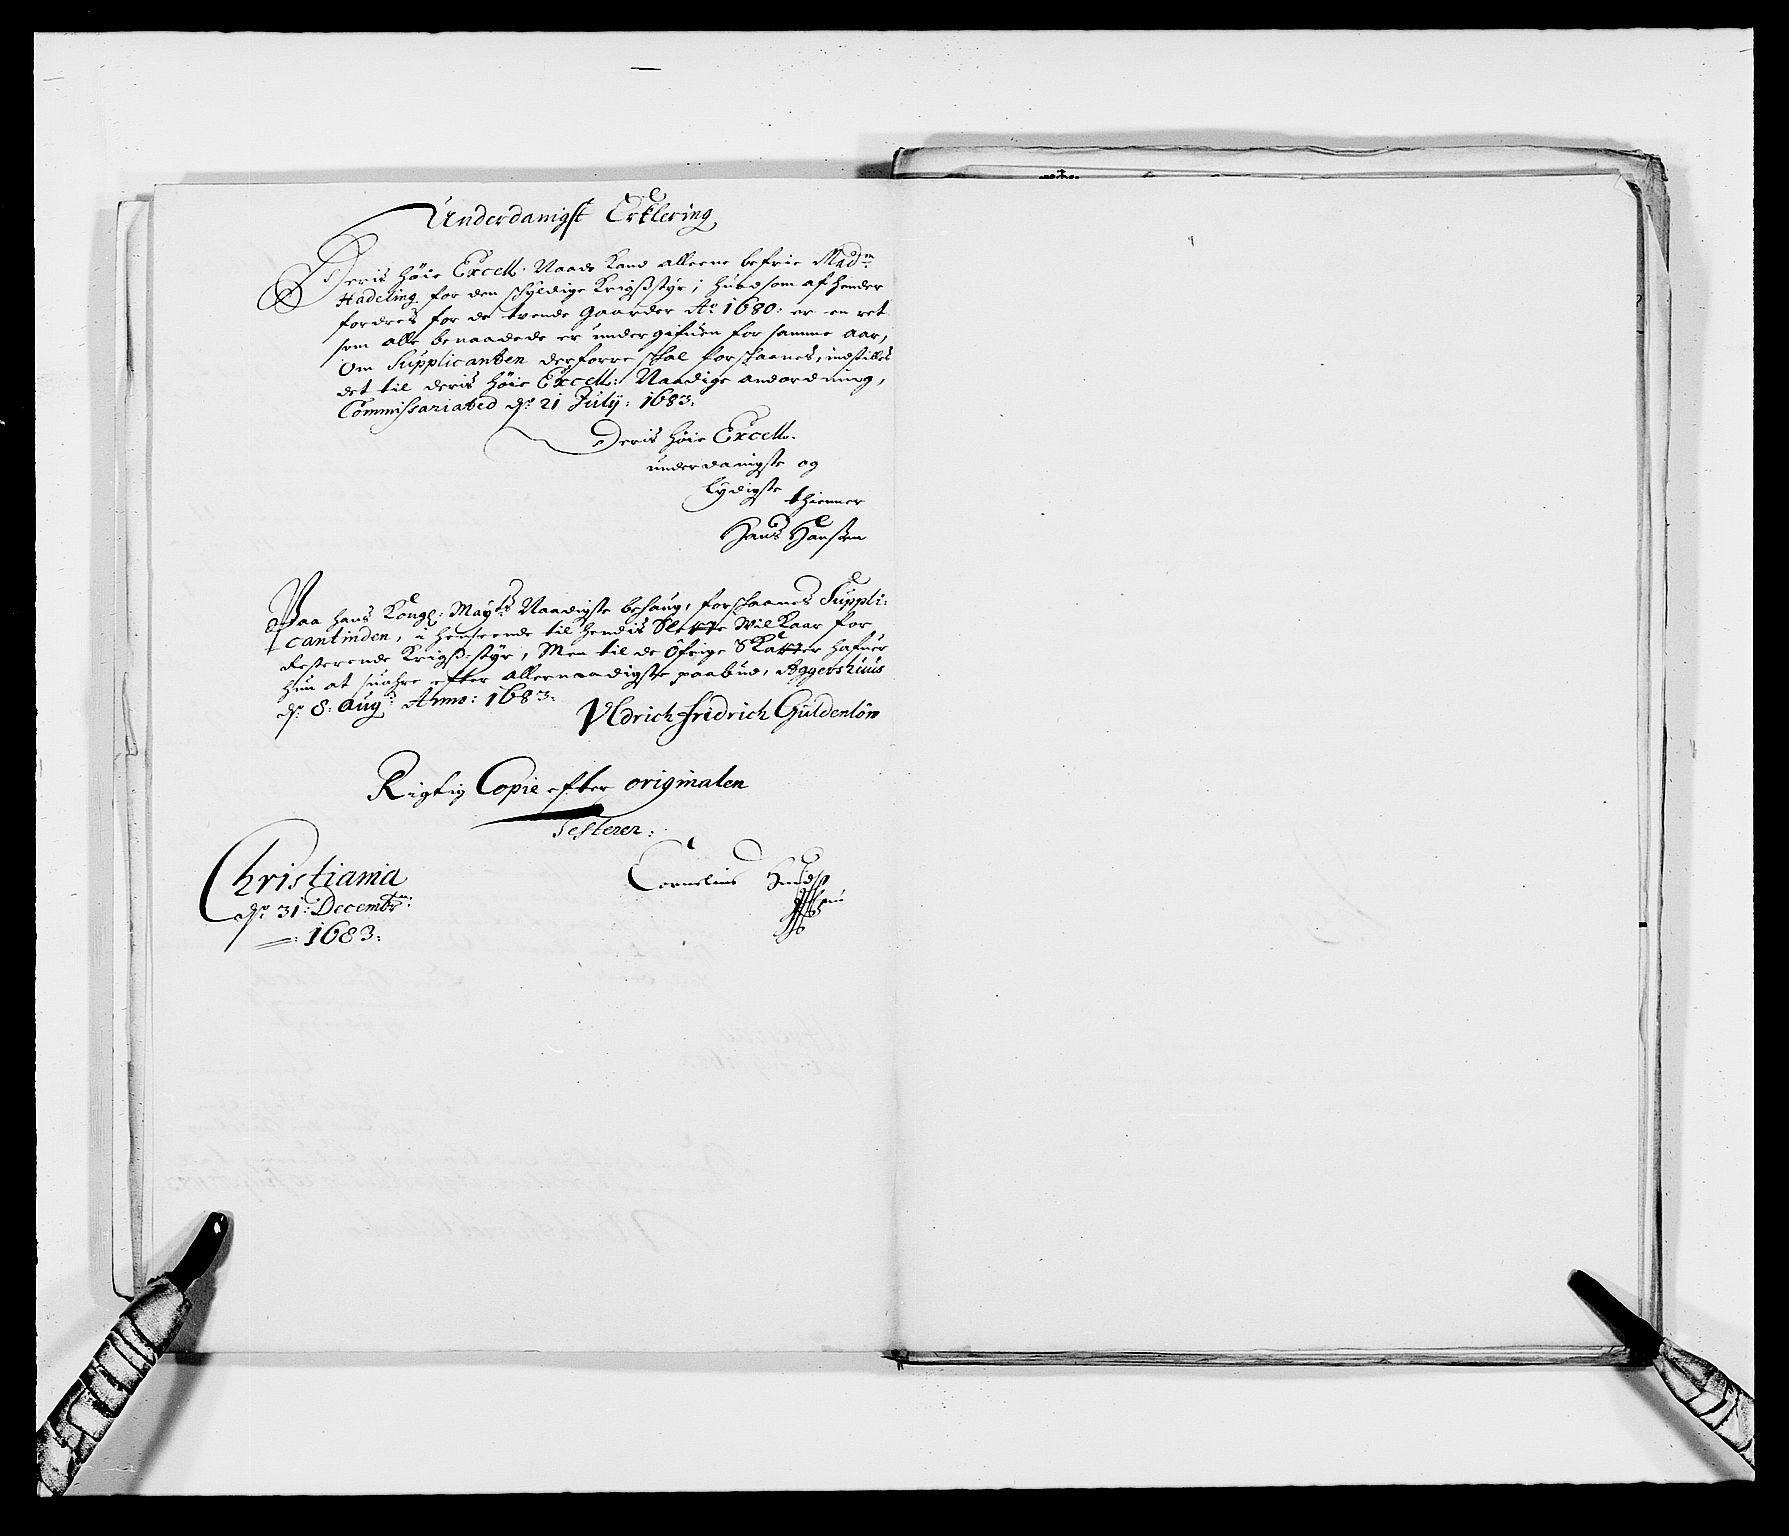 Underdanigst Erklering
Deris höie Excell: Naade kand alleene befrie Mad.m
Hadeling for den schyldige Krigsstyr, hvad som af hender
fordres for de tvende gaarder Ao 1680: er en ret
som alle benaadede er undergifuen for samme aar,
Om Supplicanten derforre skal forskaanes, indstilles
det til deris höie Excell: Naadige andordning,
Commissariated dn 21 July: 1683:
Deris höie Excell.
underdanigste og
lydigste thienner
Hans Hansen
Paa hans Kongl: Mayts Naadigste behaug, forskaanes Suppli-
cantinden, i henseende til hendis Slette Vilkaar for
Resterende Krigs-styr, Men til de Öfrige Skatter hafuer
hun at suahre efter allernaadigste paabud, Aggershuus
dn 8: Augti Anno: 1683:
Uldrich Fridrich Güldenlöw
Rigtig Copie efter originalen
Testerer:
Christiania
dn 31: Decembr:
1683:
Cornelius